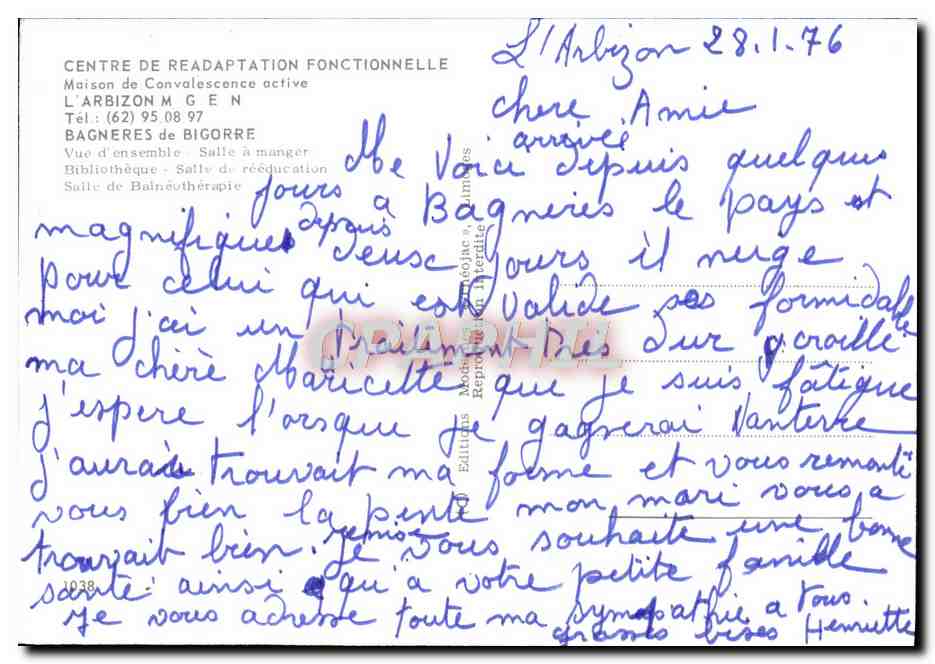 CENTRE DE READAPTATION FONCTIONNELLE
Maison de Convalescence active
L'ARBIZON M G E N
Tél.: (62) 95 08 97
BAGNERES de BIGORRE
Vue d'ensemble - Salle à manger
Bibliothèque - Salle de rééducation
Salle de Balnéothérapie
L'Arbizon 28.1.76
chere Amie
arrivée
Me Voici depuis quelques
jours a Bagneres le pays est
magnifique depuis deux jours il neige
pour celui qui est valide ses formidable
moi j'ai un traitement très dur
ma chère Maricette que je suis fâtigue
j'espere l'orsque je gagnerai Nanterre
j'aurais trouvait ma forme et vous remonté
vous bien la pente mon mari vous a
trouvait bien. remise je vous souhaite une bonne
santé ainsi qu'a votre petite famille
Je vous adresse toute ma sympathie a tous.
grosses bises Henriette
Editions Modernes Limoges
Reproduction Interdite
1038